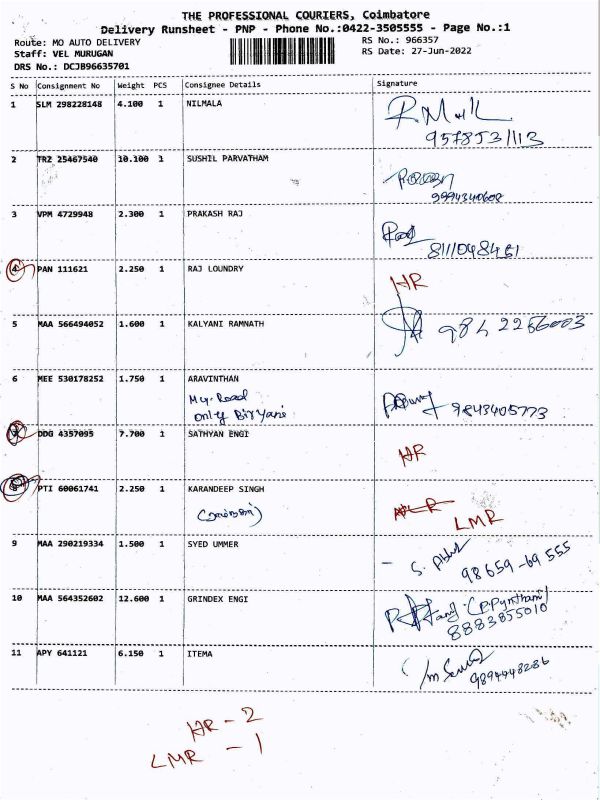 THE PROFESSIONAL COURIERS, Coimbatore
Delivery Runsheet - PNP - Phone No.:0422-3505555 - Page No.:1
Route: MO AUTO DELIVERY RS No.: 966357
Staff: VEL MURUGAN RS Date: 27-Jun-2022
DRS No.: DCJB96635701
S No Consignment No Weight PCS Consignee Details Signature
1 SLM 298228148 4.100 1 NILMALA
9578531113
2 TRZ 25467540 10.100 1 SUSHIL PARVATHAM
9994340608
3 VPM 4729948 2.300 1 PRAKASH RAJ Raj
8111048451
4 PAN 111621 2.250 1 RAJ LOUNDRY HR
5 MAA 566494052 1.600 1 KALYANI RAMNATH 9842256003
6 MEE 530178252 1.750 1 ARAVINTHAN
My. Road
only Biryani 9843405773
7 DDG 4357095 7.700 1 SATHYAN ENGI HR
8 PTI 60061741 2.250 1 KARANDEEP SINGH
LMR
9 MAA 290219334 1.500 1 SYED UMMER - S. Abul
98659-69555
10 MAA 564352602 12.600 1 GRINDEX ENGI
8883855010
11 APY 641121 6.150 1 ITEMA
9894448286
HR - 2
LMR - 1